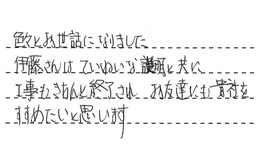 色々とお世話になりました
伊藤さんはていねいな説明と共に
工事もきちんと終了され お友達にも貴社を
すすめたいと思います